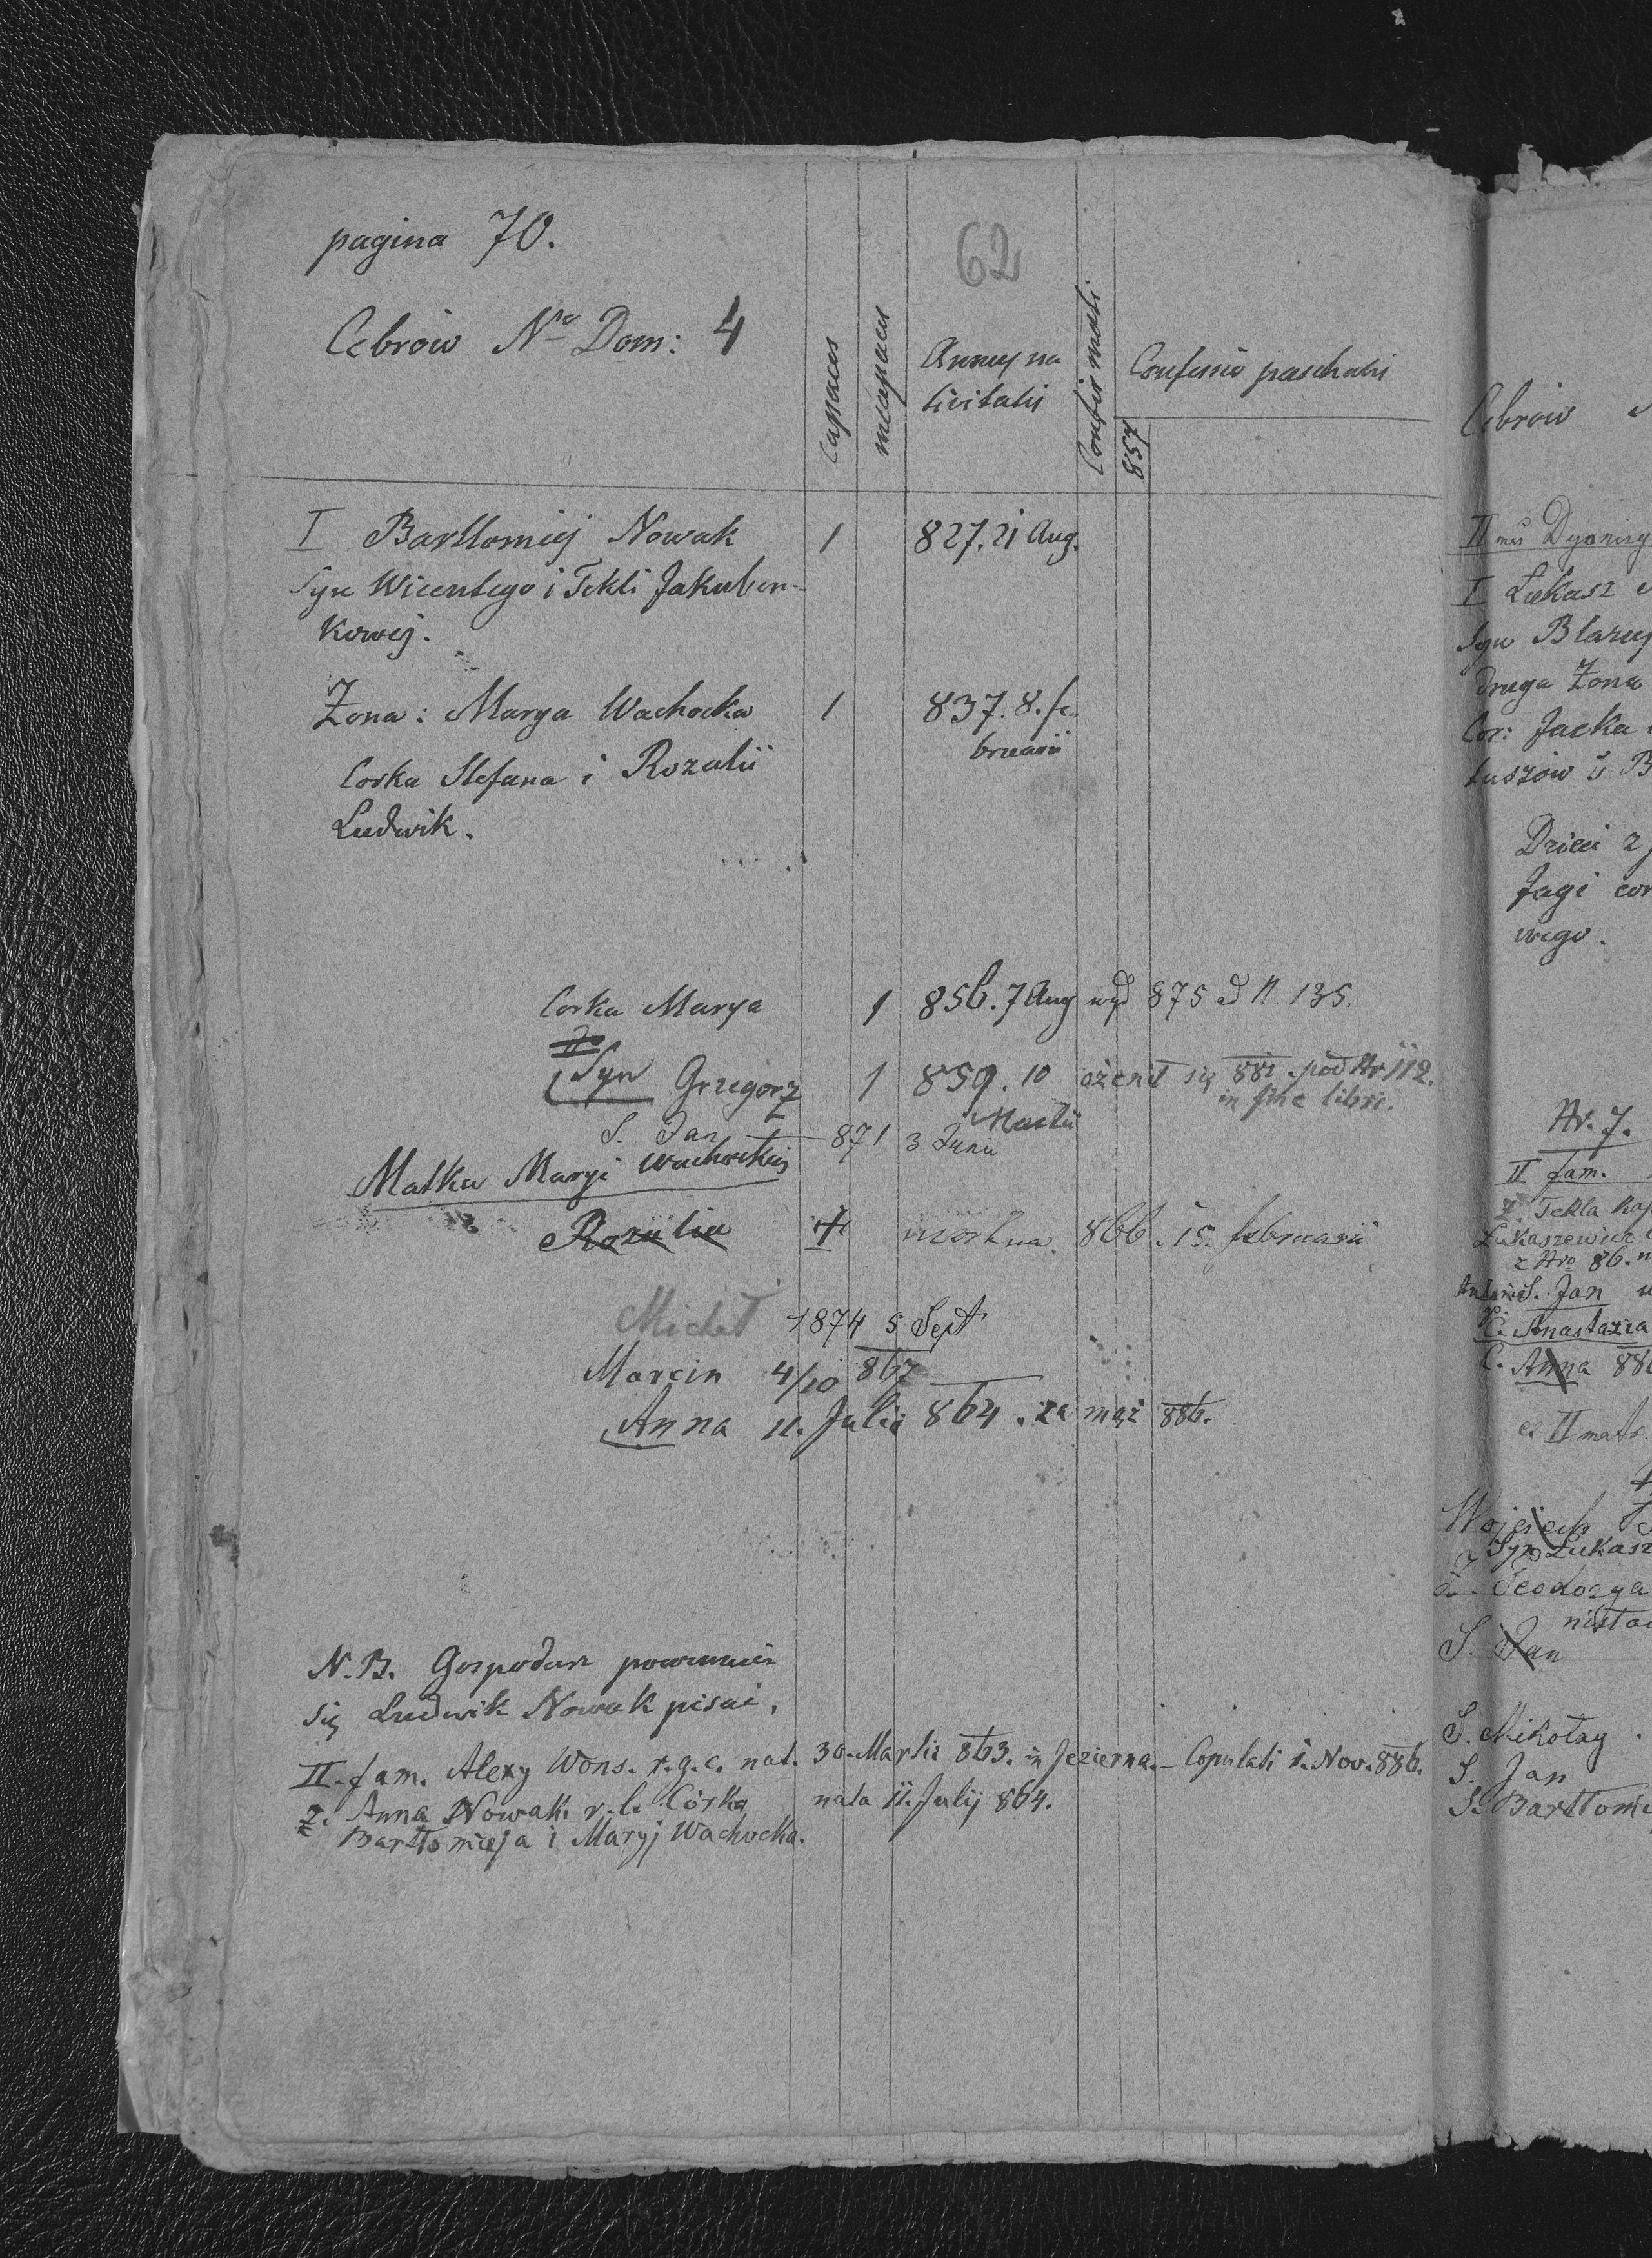 pagina 70.
62
Cebrów Nro Dom: 4
Capaces
incapaces
Annus na
tivitatis
Confirmati
Confessio paschalis
857
I Bartłomiej Nowak 1 827. 21 Aug.
Syn Wicentego i Tekli Jakuben-
kowej.
Żona: Marya Wachocka 1 837. 8. fe
bruarii
Corka Stefana i Rozalii
Ludwik.
Corka Marya 1 856. 7 Aug wyd 875 d N. 135.
Syn Grzegorz 1 859. 10 ożenił się 881. pod Nr 112.
Martii in fine libri.
S. Jan 871 3 Junii
Matka Maryi Wachockiej
Rozalia + umarła 866. 15. februarii
Michał 1874 5 Sept
Marcin 4/10 867
Anna 11. Julii 864. za mąż 886.
N.B. Gospodarz powinien
się Ludwik Nowak pisać,
II. fam. Alexy Wons. r.g.c. nat. 30. Martii 863. in Jezierna. - Copulati 1. Nov. 886.
Ż. Anna Nowak. r. l. Córka nata 11. Julij 864.
Bartłomieja i Maryj Wachocka.
Cebrów
II Dyonizy
I Łukasz
Syn Błażej
druga Żona
Cor: Jacka
tuszów
Dzieci z
Jagi cor
wego.
Nr. 7.
II fam.
Ż. Tekla
Łukaszewicz
z Nro 86.
S. Jan
C. Anastazia
C. Anna 88
Wojciech
Syn Łukasz
Teodozya
S. Jan
S. Mikołay
S. Jan
S. Bartłomi